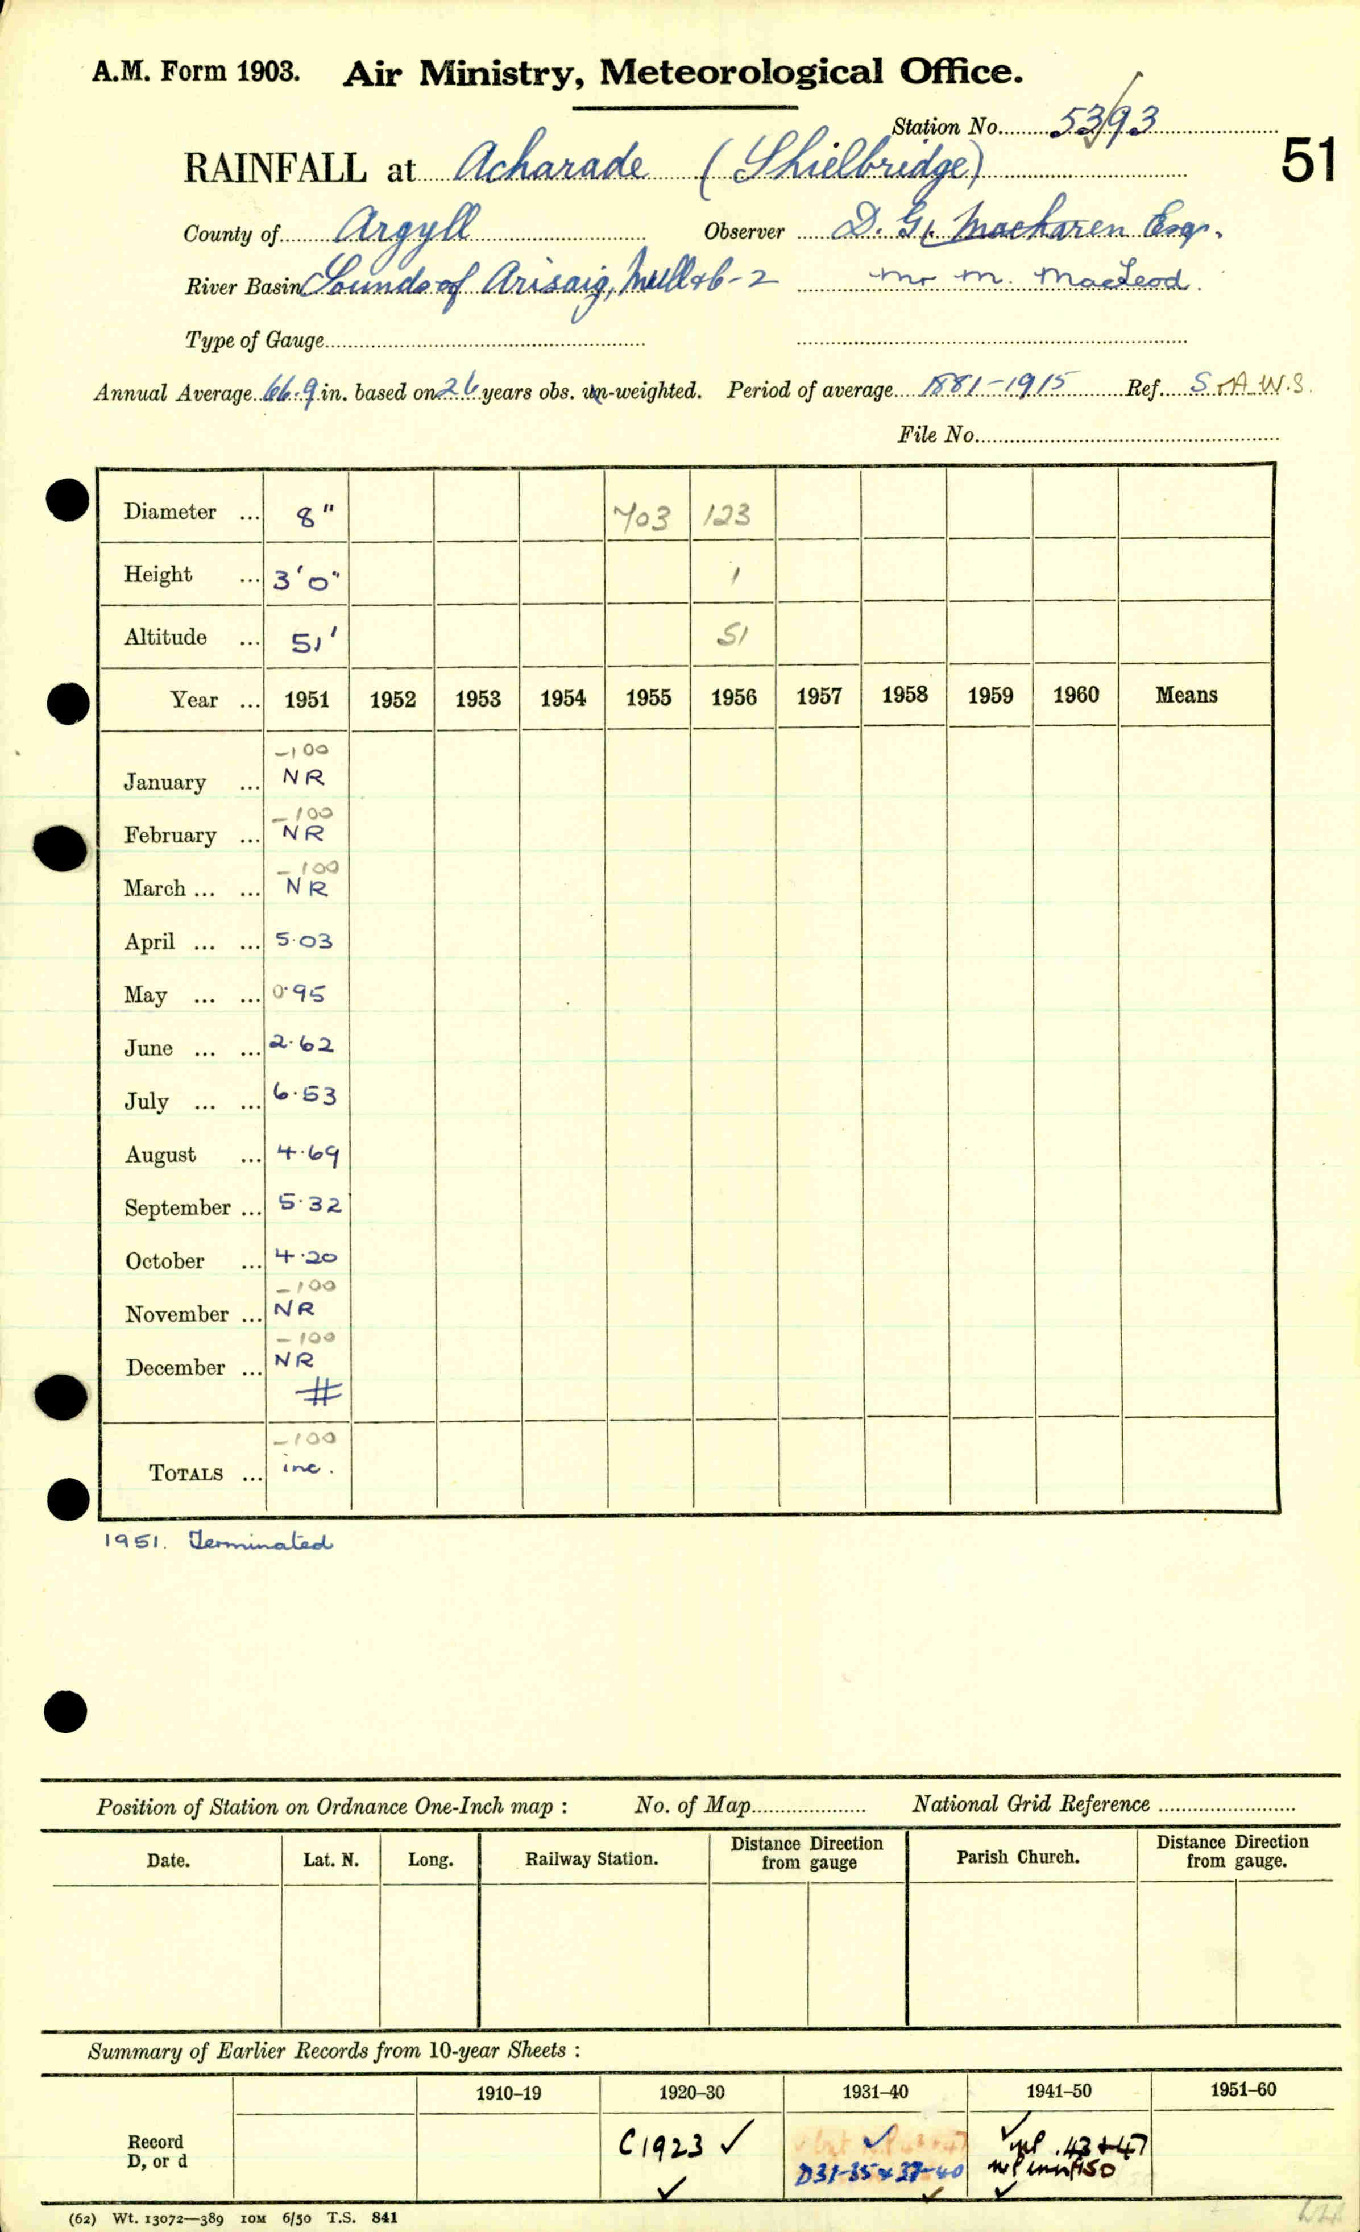 A.M. Form 1903. Air Ministry, Meteorological Office.
Station No. 5393
RAINFALL at Acharade (Shielbridge) 51
County of Argyll Observer D. G. MacLaren Esqr.
River Basin Sounds of Arisaig, Mull &c - 2 Mr M. MacLeod
Type of Gauge
Annual Average 66.9 in. based on 26 years obs. un-weighted. Period of average 1881-1915 Ref. S of A.W.S.
File No.
Diameter ... 8" 703 123
Height ... 3'0" 1
Altitude ... 51' 51
Year ... 1951 1952 1953 1954 1955 1956 1957 1958 1959 1960 Means
-100
January ... NR
-100
February ... NR
-100
March ... ... NR
April ... ... 5.03
May ... ... 0.95
June ... ... 2.62
July ... ... 6.53
August ... 4.69
September ... 5.32
October ... 4.20
-100
November ... NR
-100
December ... NR
#
-100
TOTALS ... inc.
1951. Terminated
Position of Station on Ordnance One-Inch map : No. of Map National Grid Reference
Date. Lat. N. Long. Railway Station. Distance from gauge Direction Parish Church. Distance from gauge. Direction
Summary of Earlier Records from 10-year Sheets :
1910–19 1920–30 1931–40 1941–50 1951–60
Record C1923 ✓ ✓ ✓ 43 + 47
D, or d D31-35 & 37-40
✓ ✓ ✓
(62) Wt. 13072—389 10M 6/50 T.S. 841